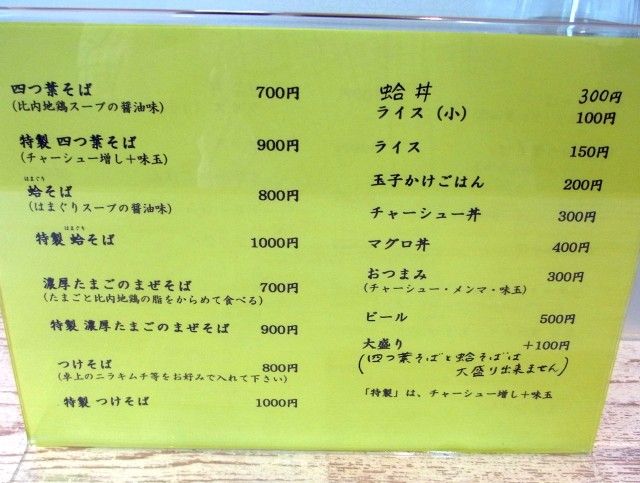 四つ葉そば 700円
(比内地鶏スープの醤油味)
特製 四つ葉そば 900円
(チャーシュー増し+味玉)
はまぐり
蛤そば 800円
(はまぐりスープの醤油味)
はまぐり
特製 蛤そば 1000円
濃厚たまごのまぜそば 700円
(たまごと比内地鶏の脂をからめて食べる)
特製 濃厚たまごのまぜそば 900円
つけそば 800円
(卓上のニラキムチ等をお好みで入れて下さい)
特製 つけそば 1000円
蛤丼 300円
ライス (小) 100円
ライス 150円
玉子かけごはん 200円
チャーシュー丼 300円
マグロ丼 400円
おつまみ 300円
(チャーシュー・メンマ・味玉)
ビール 500円
大盛り +100円
(四つ葉そばと蛤そばは
大盛り出来ません)
「特製」は、チャーシュー増し+味玉